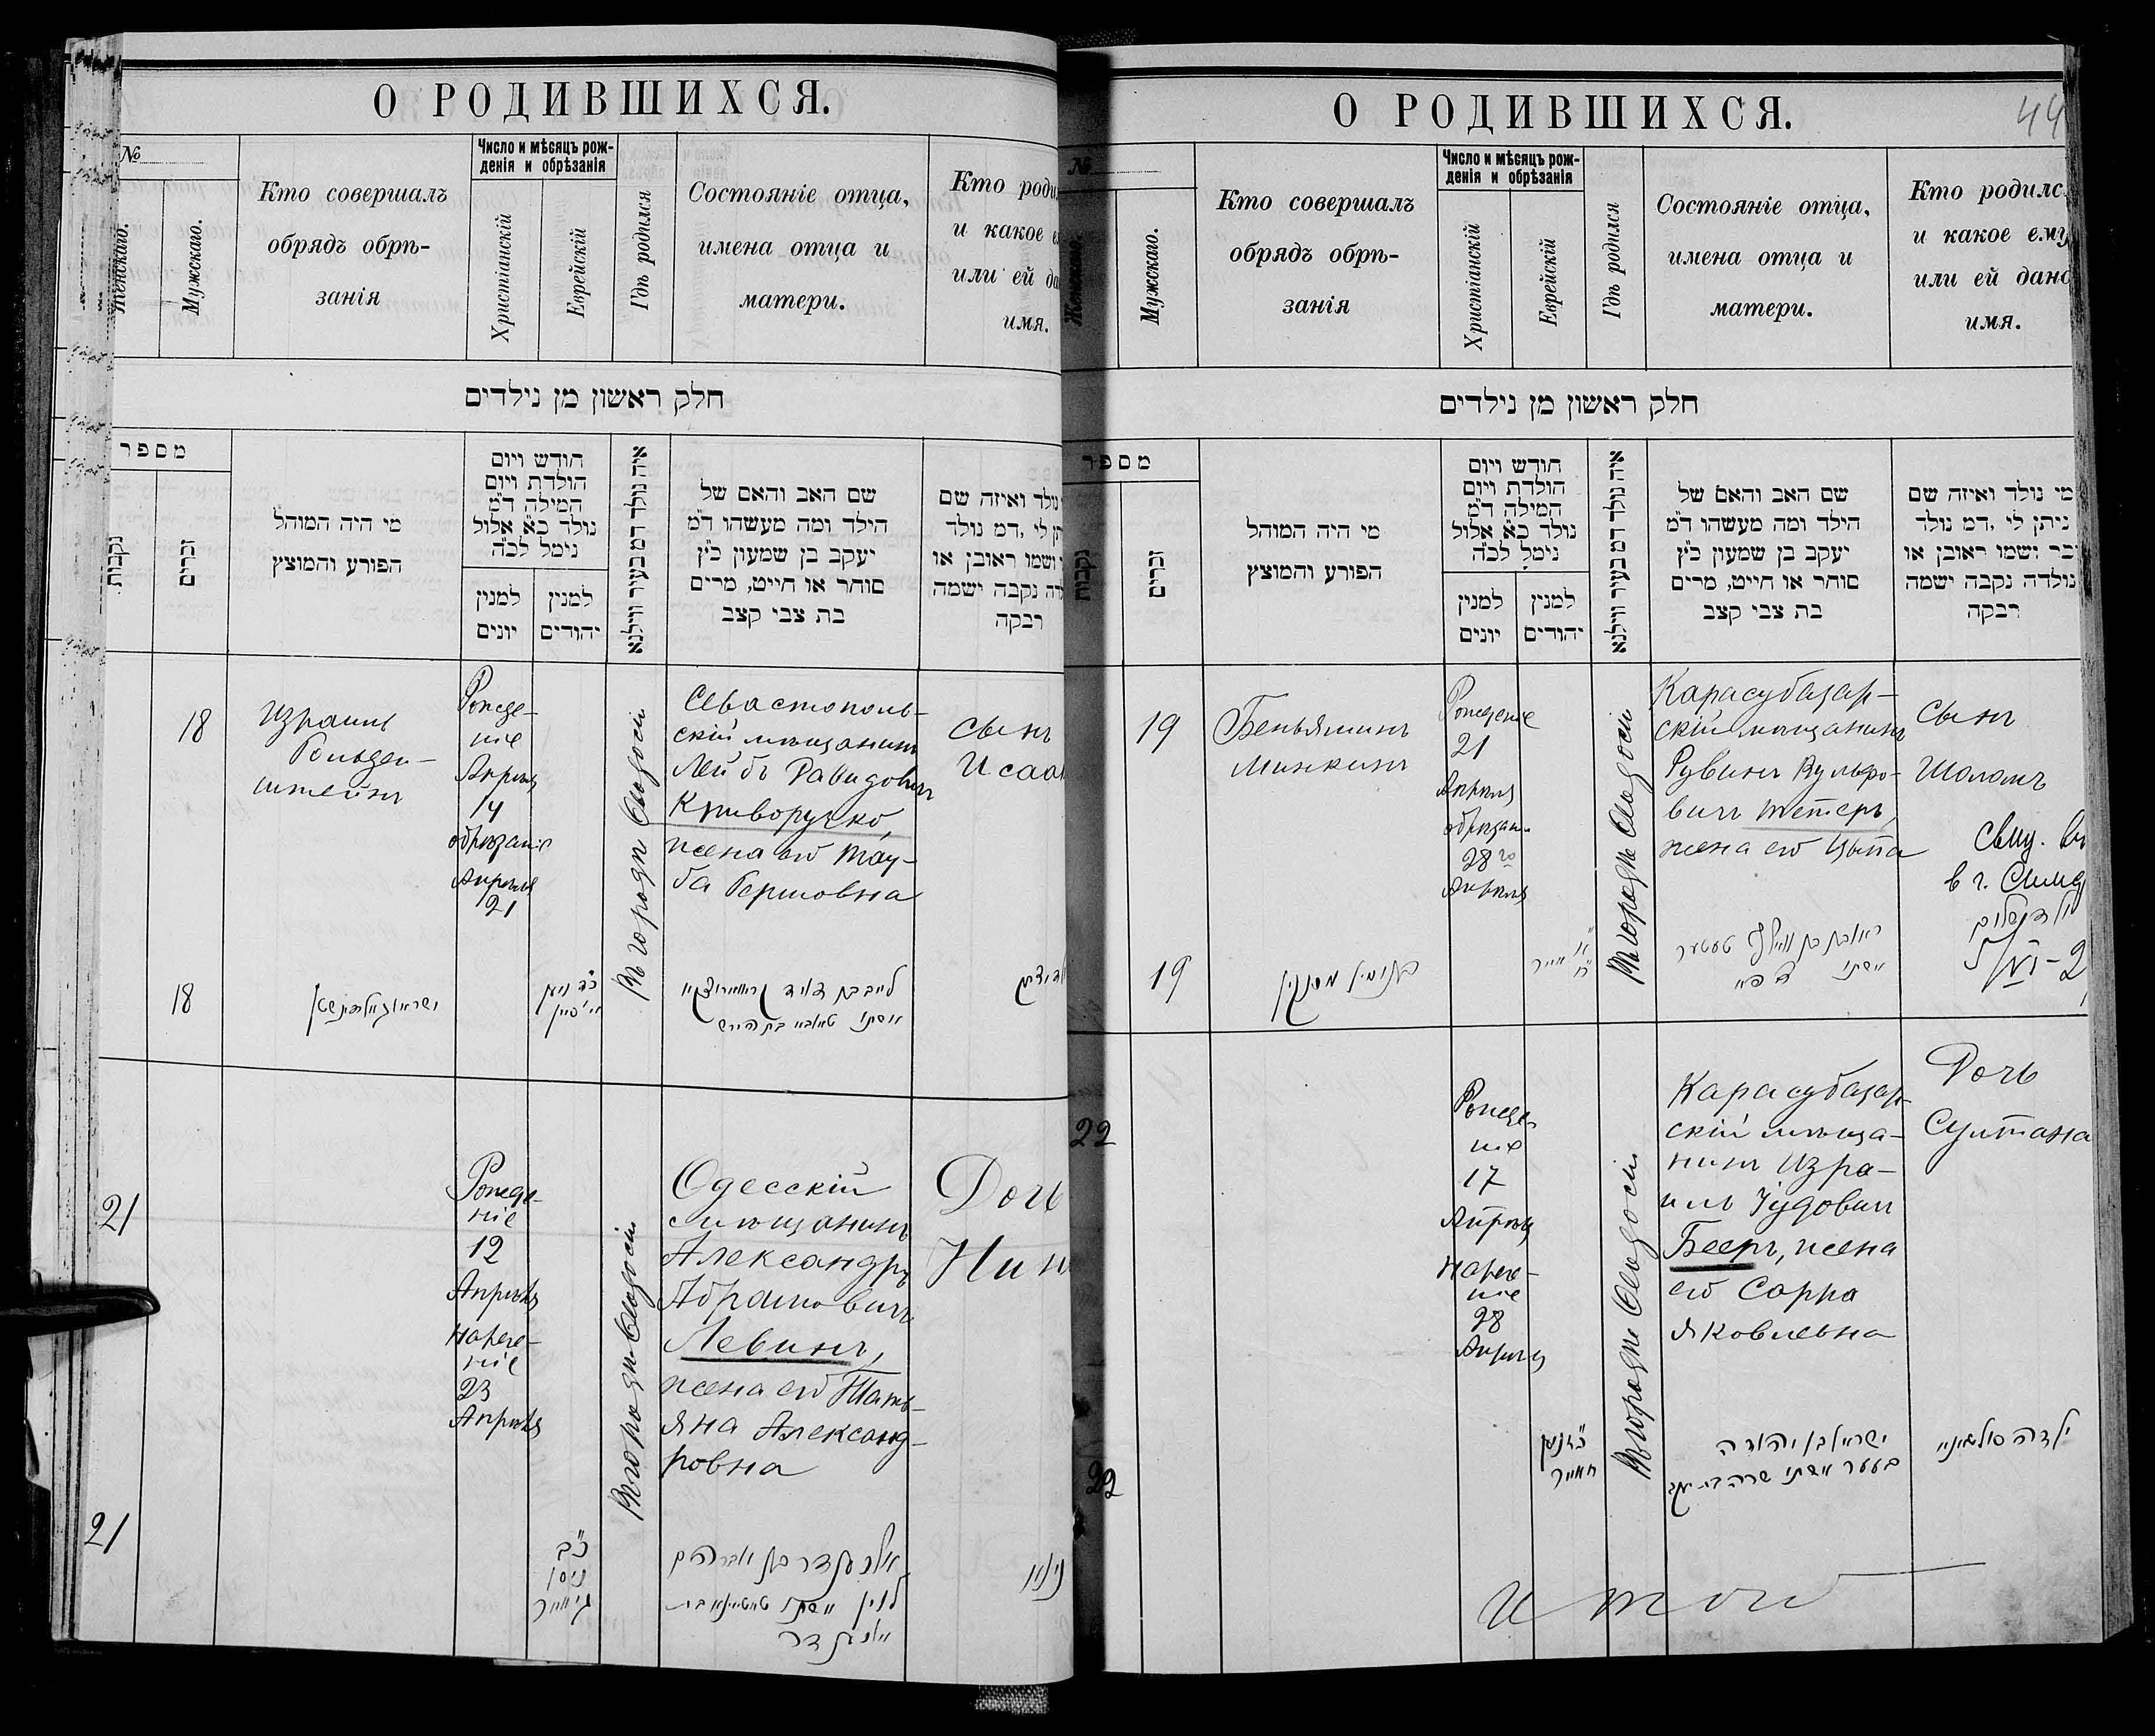 О РОДИВШИХСЯ.
№
Женскаго.
Мужскаго.
Кто совершалъ
обрядъ обрѣ-
занія
Число и мѣсяцъ рож-
денія и обрѣзанія
Христіанскій
Еврейскій
Гдѣ родился
Состояніе отца,
имена отца и
матери.
Кто роди
и какое е
или ей да
имя.
חלק ראשון מן נילדים
מספר
נקבות
זכרים
מי היה המוהל
הפורע והמוצץ
חודש ויום
הולדת ויום
המילה ד"מ
נולד כ"א אלול
נימל לכ"ה
למנין
יונים
למנין
יהודים
איה נולד דמ בעיר ווילנא
שם האב והאם של
הילד ומה מעשהו ד"מ
יעקב בן שמעון כ"ץ
סוחר או חייט, מרים
בת צבי קצב
נולד ואיזה שם
תן לי ,דמ נולד
ושמו ראובן או
דה נקבה ישמה
רבקה
18
Израиль
Гольден-
штейнъ
Рожде-
ніе
Апрѣля
14
обрѣзаніе
Апрѣля
21
Въ городѣ Ѳеодосіи
Севастополь-
скій мѣщанинъ
Лейбъ Давидовичъ
Криворучко,
жена его Тау-
ба Гершовна
сынъ
Исаа
18
21
Рожде-
ніе
12
Апрѣля
нарече-
ніе
23
Апрѣля
Въ городѣ Ѳеодосіи
Одесскій
мѣщанинъ
Александръ
Абрамовичъ
Левинъ,
жена его Тать-
яна Александ-
ровна
Дочь
Нин
21
כ"ב
ניסן
О РОДИВШИХСЯ.
44
№
Женскаго.
Мужскаго.
Кто совершалъ
обрядъ обрѣ-
занія
Число и мѣсяцъ рож-
денія и обрѣзанія
Христіанскій
Еврейскій
Гдѣ родился
Состояніе отца,
имена отца и
матери.
Кто родилс
и какое ему
или ей дано
имя.
חלק ראשון מן נילדים
מספר
נקבות
זכרים
מי היה המוהל
הפורע והמוצץ
חודש ויום
הולדת ויום
המילה ד"מ
נולד כ"א אלול
נימל לכ"ה
למנין
יונים
למנין
יהודים
איה נולד דמ בעיר ווילנא
שם האב והאם של
הילד ומה מעשהו ד"מ
יעקב בן שמעון כ"ץ
סוחר או חייט, מרים
בת צבי קצב
מי נולד ואיזה שם
ניתן לי ,דמ נולד
כר ישמו ראובן או
נולדה נקבה ישמה
רבקה
19
Беньяминъ
Минкинъ
Рожденіе
21
Апрѣля
обрѣзаніе
28го
Апрѣля
Въ городѣ Ѳеодосіи
Карасубазар-
скій мѣщанинъ
Рувинъ Вульфо-
вичъ Тетеръ,
жена его Цыпа
сынъ
Шоломъ
19
ראובן בן וואלף טעטער
22
Рожде-
ніе
17
Апрѣля
нарече-
ніе
28
Апрѣля
Въ городѣ Ѳеодосіи
Карасубазар-
скій мѣща-
нинъ Изра-
иль Іудовичъ
Бееръ, жена
его Сарра
Яковлевна
Дочь
Султана
22
ישראל בן יהודה
בעער אשתו שרה בת יעקב
ילדה
Итого